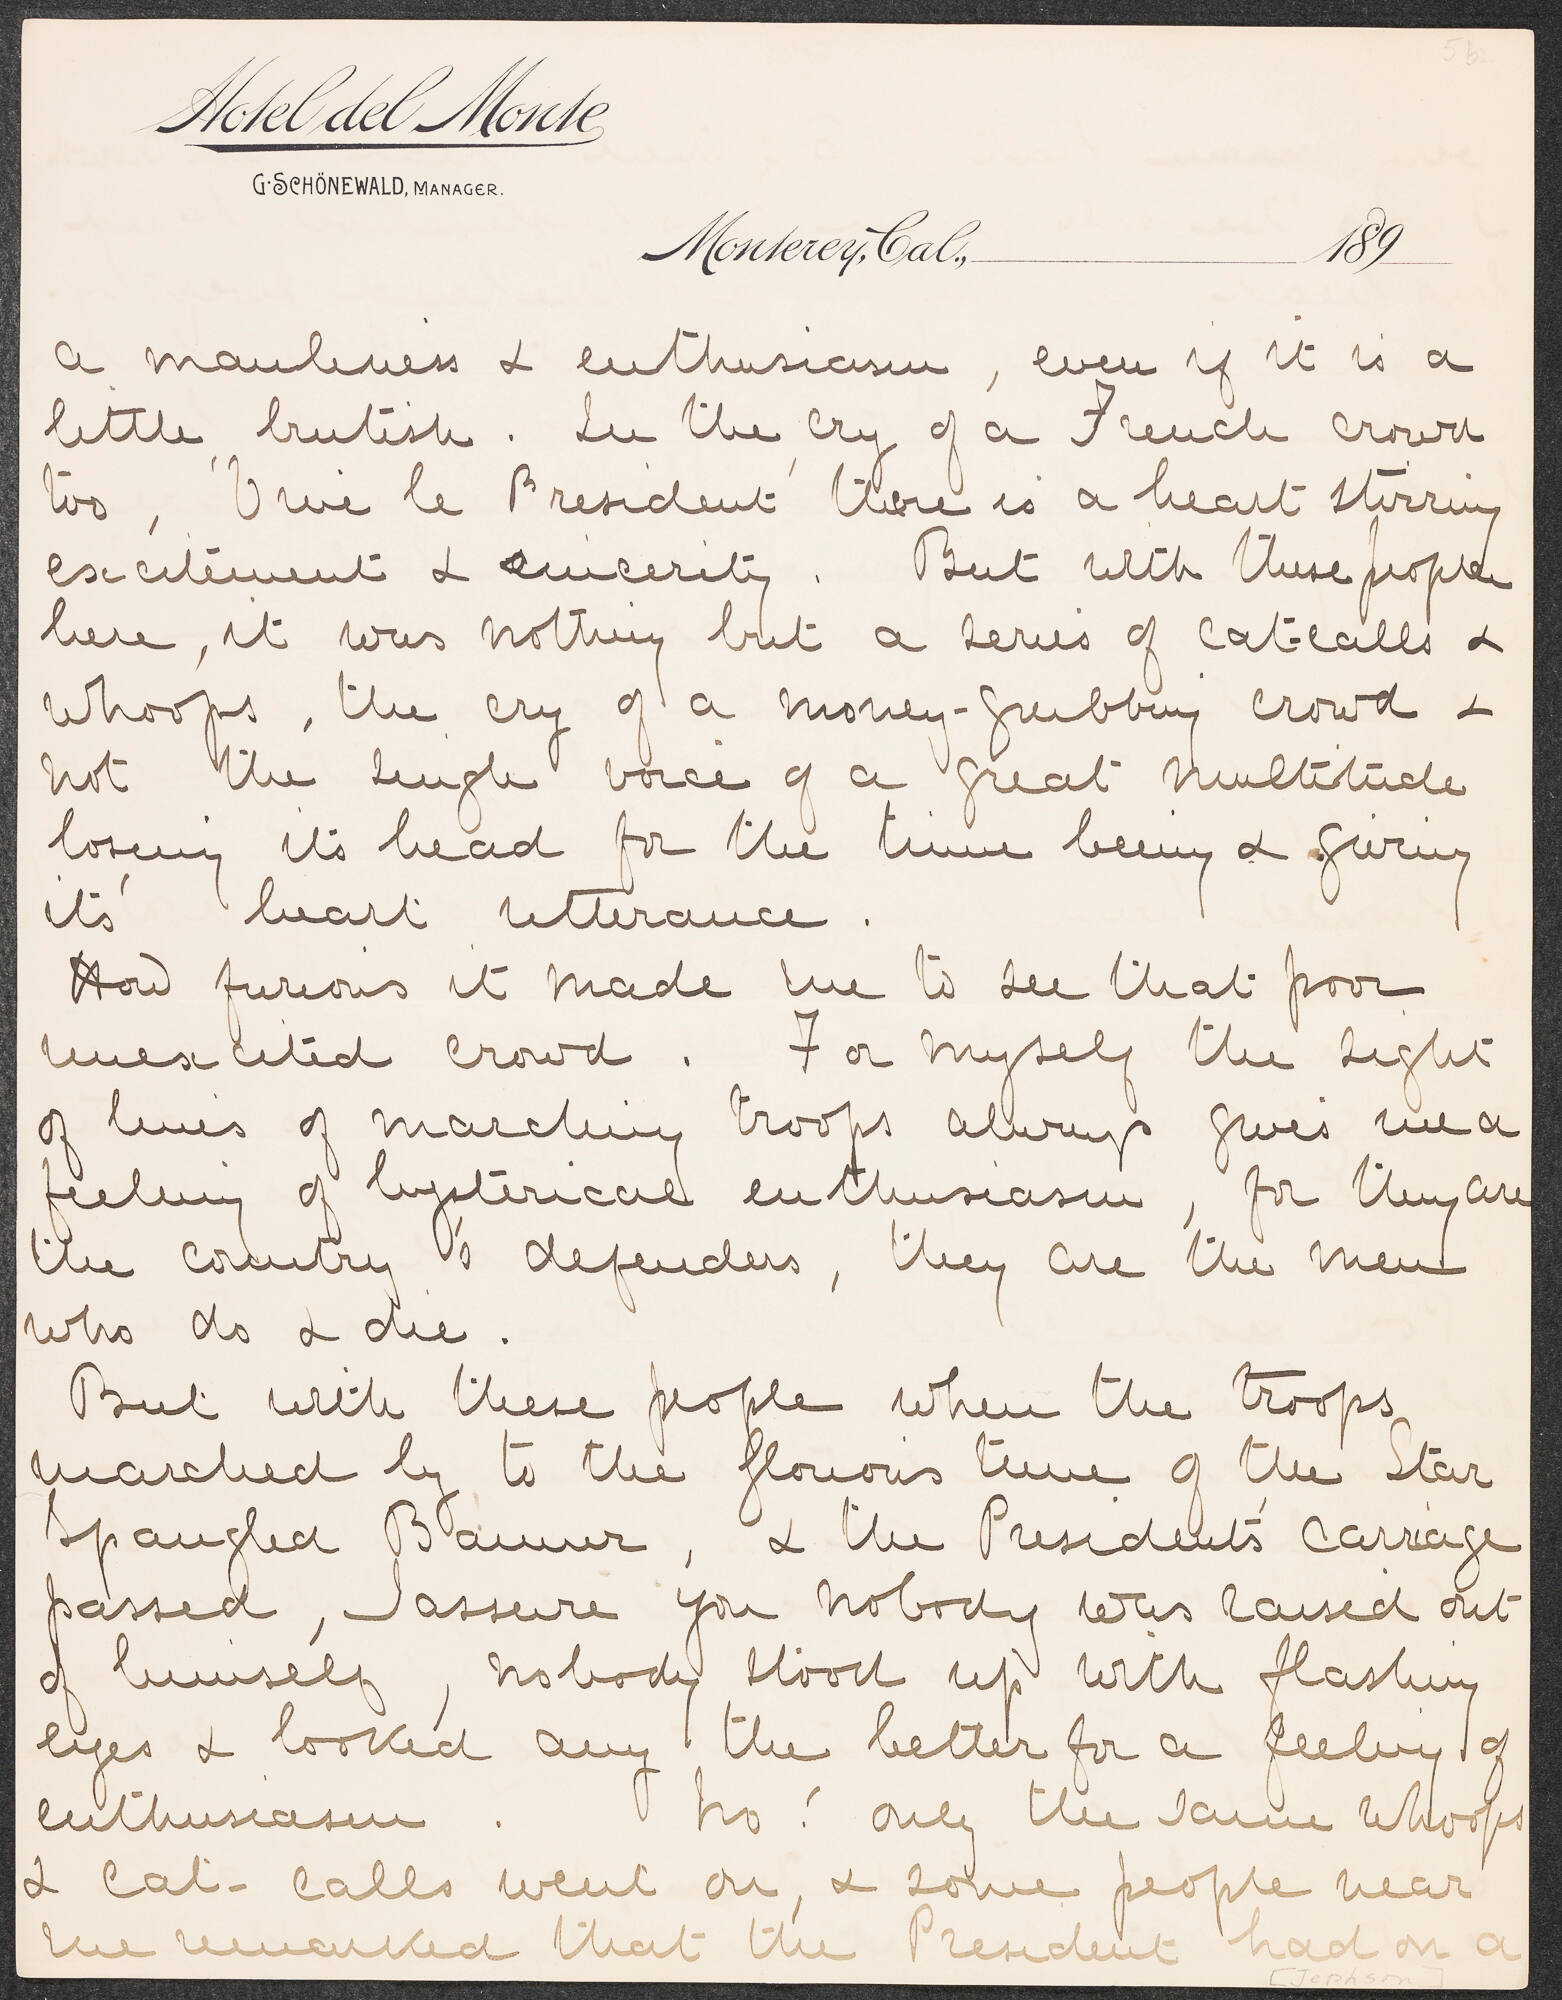 5b
Hotel del Monte
G. SCHÖNEWALD, MANAGER.
Monterey, Cal., 189
a manliness & enthusiasm, even if it is a
little brutish. In the cry of a French crowd
too, 'Vive le President' there is a heart stirring
excitement & sincerity. But with these people
here, it was nothing but a series of cat-calls &
whoops, the cry of a money-grubbing crowd &
not the single voice of a great multitude
losing its head for the time being & giving
its' heart utterance.
How furious it made me to see that poor
unexcited crowd. For myself the sight
of lines of marching troops always gives me a
feeling of hysterical enthusiasm, for they are
the country's defenders, they are the men
who do & die.
But with these people when the troops
marched by to the glorious tune of the Star
Spangled Banner, & the President's carriage
passed, I assure you nobody was raised out
of himself, nobody stood up with flashing
eyes & looked any the better for a feeling of
enthusiasm. No! only the same whoops
& cat-calls went on, & some people near
me remarked that the President had on a
[Jephson]